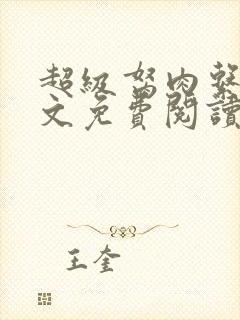 超級弩肉
文免費閱讀
王奎